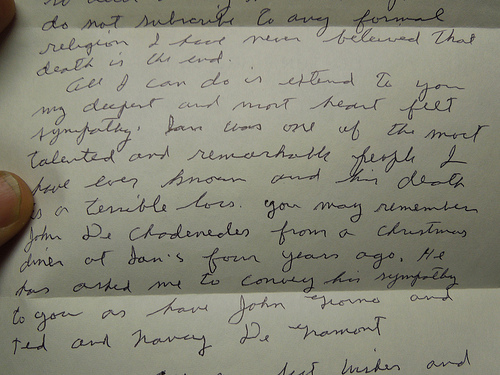 do not subscribe to any formal
religion I have never believed that
death is the end.
All I can do is extend to you
my deepest and most heart felt
sympathy. Ian was one of the most
talented and remarkable people I
have ever known and his death
is a terrible loss. you may remember
John De Chadenedes from a christmas
diner at Ian's four years ago. He
has asked me to convey his sympathy
to you as have John Giorno and
Ted and Nancy De Gramont
best wishes and